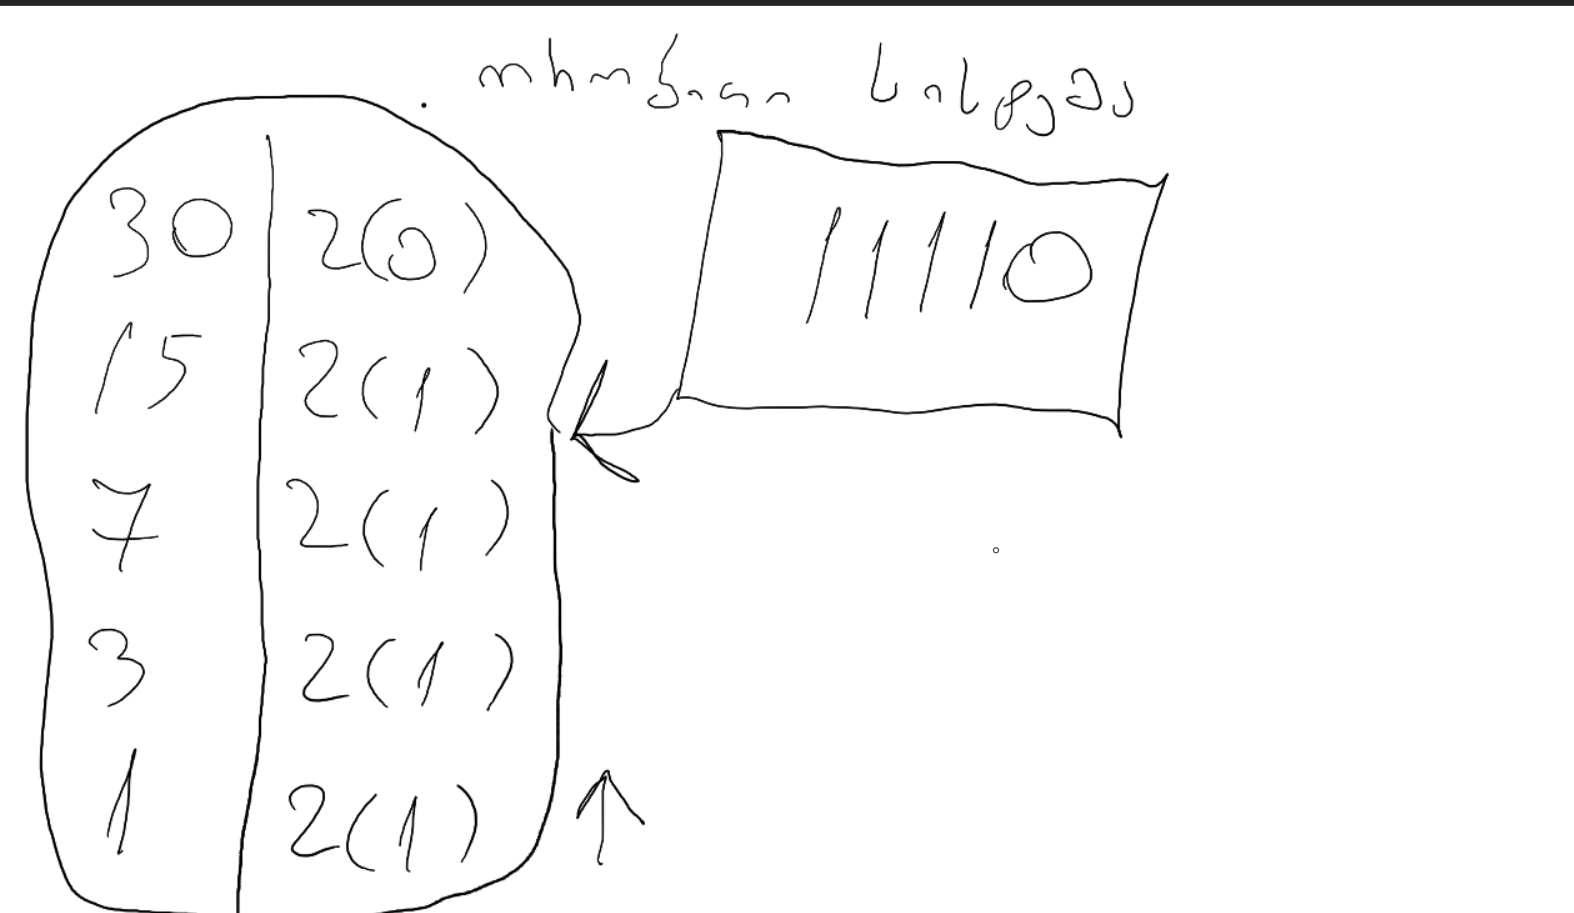 ორობითი სისტემა
30 2(0)
15 2(1)
7 2(1)
3 2(1)
1 2(1)
11110